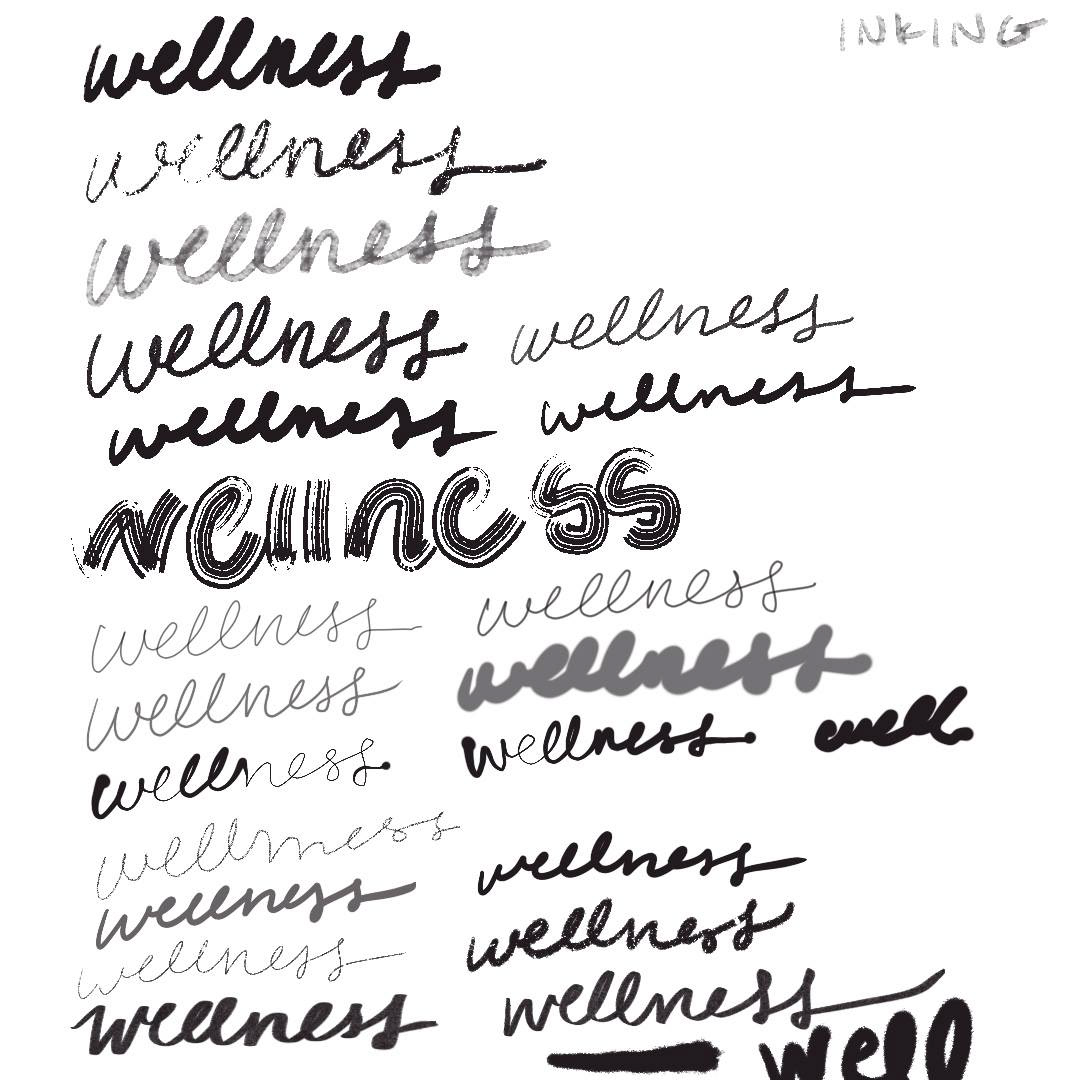 INKING
wellness
wellness
wellness
wellness wellness
wellness wellness
wellness
wellness wellness
wellness wellness
wellness wellness well
wellness
wellness wellness
wellness wellness
wellness wellness
well